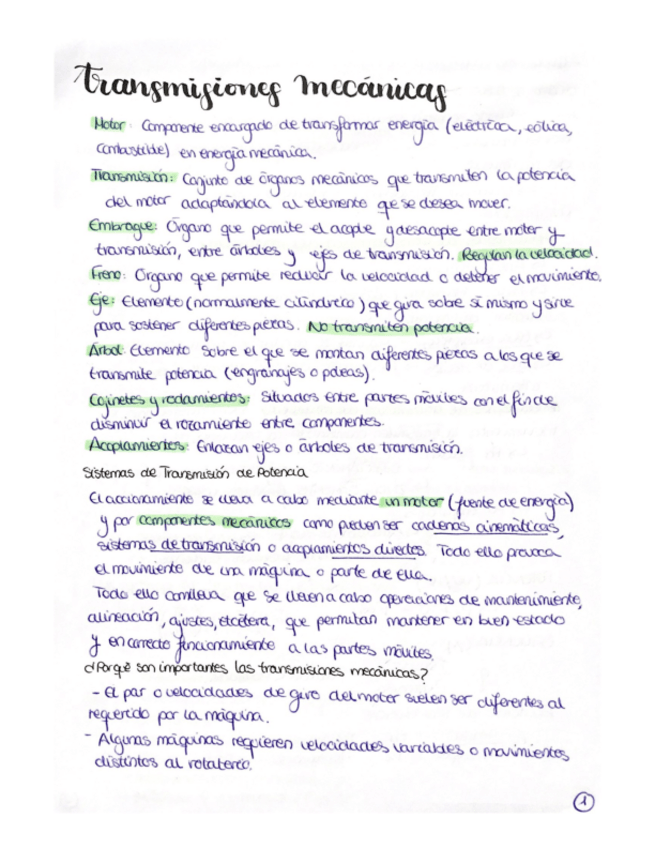 transmisiones mecánicas
Motor: Componente encargado de transformar energía (eléctrica, eólica,
combustible) en energía mecánica.
Transmisión: Conjunto de órganos mecánicos que transmiten la potencia
del motor adaptándola al elemento que se desea mover.
Embrague: Órgano que permite el acople y desacople entre motor y
transmisión, entre árboles y ejes de transmisión. Regulan la velocidad.
Freno: Órgano que permite reducir la velocidad o detener el movimiento.
Eje: Elemento (normalmente cilíndrico) que gira sobre sí mismo y sirve
para sostener diferentes piezas. No transmiten potencia.
Árbol: Elemento sobre el que se montan diferentes piezas a los que se
transmite potencia (engranajes o poleas).
Cojinetes y rodamientos: Situados entre partes móviles con el fin de
disminuir el rozamiento entre componentes.
Acoplamientos: Enlazan ejes o árboles de transmisión.
Sistemas de Transmisión de Potencia
El accionamiento se lleva a cabo mediante un motor (fuente de energía)
y por componentes mecánicos como pueden ser cadenas cinemáticas,
sistemas de transmisión o acoplamientos directos. Todo ello provoca
el movimiento de una máquina o parte de ella.
Todo ello conlleva que se lleven a cabo operaciones de mantenimiento,
alineación, ajustes, etcétera, que permitan mantener en buen estado
y en correcto funcionamiento a las partes móviles.
¿Por qué son importantes las transmisiones mecánicas?
- El par o velocidades de giro del motor suelen ser diferentes al
requerido por la máquina.
- Algunas máquinas requieren velocidades variables o movimientos
distintos al rotatorio.
1